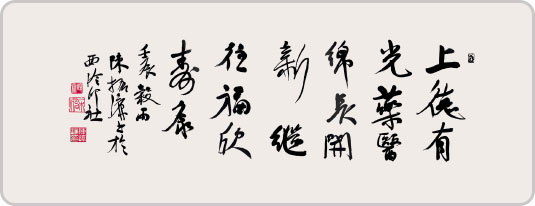 上德有
光藥醫
綿長開
新繼
往福欣
壽康
壬辰穀雨
陳振濂書於
西泠印社